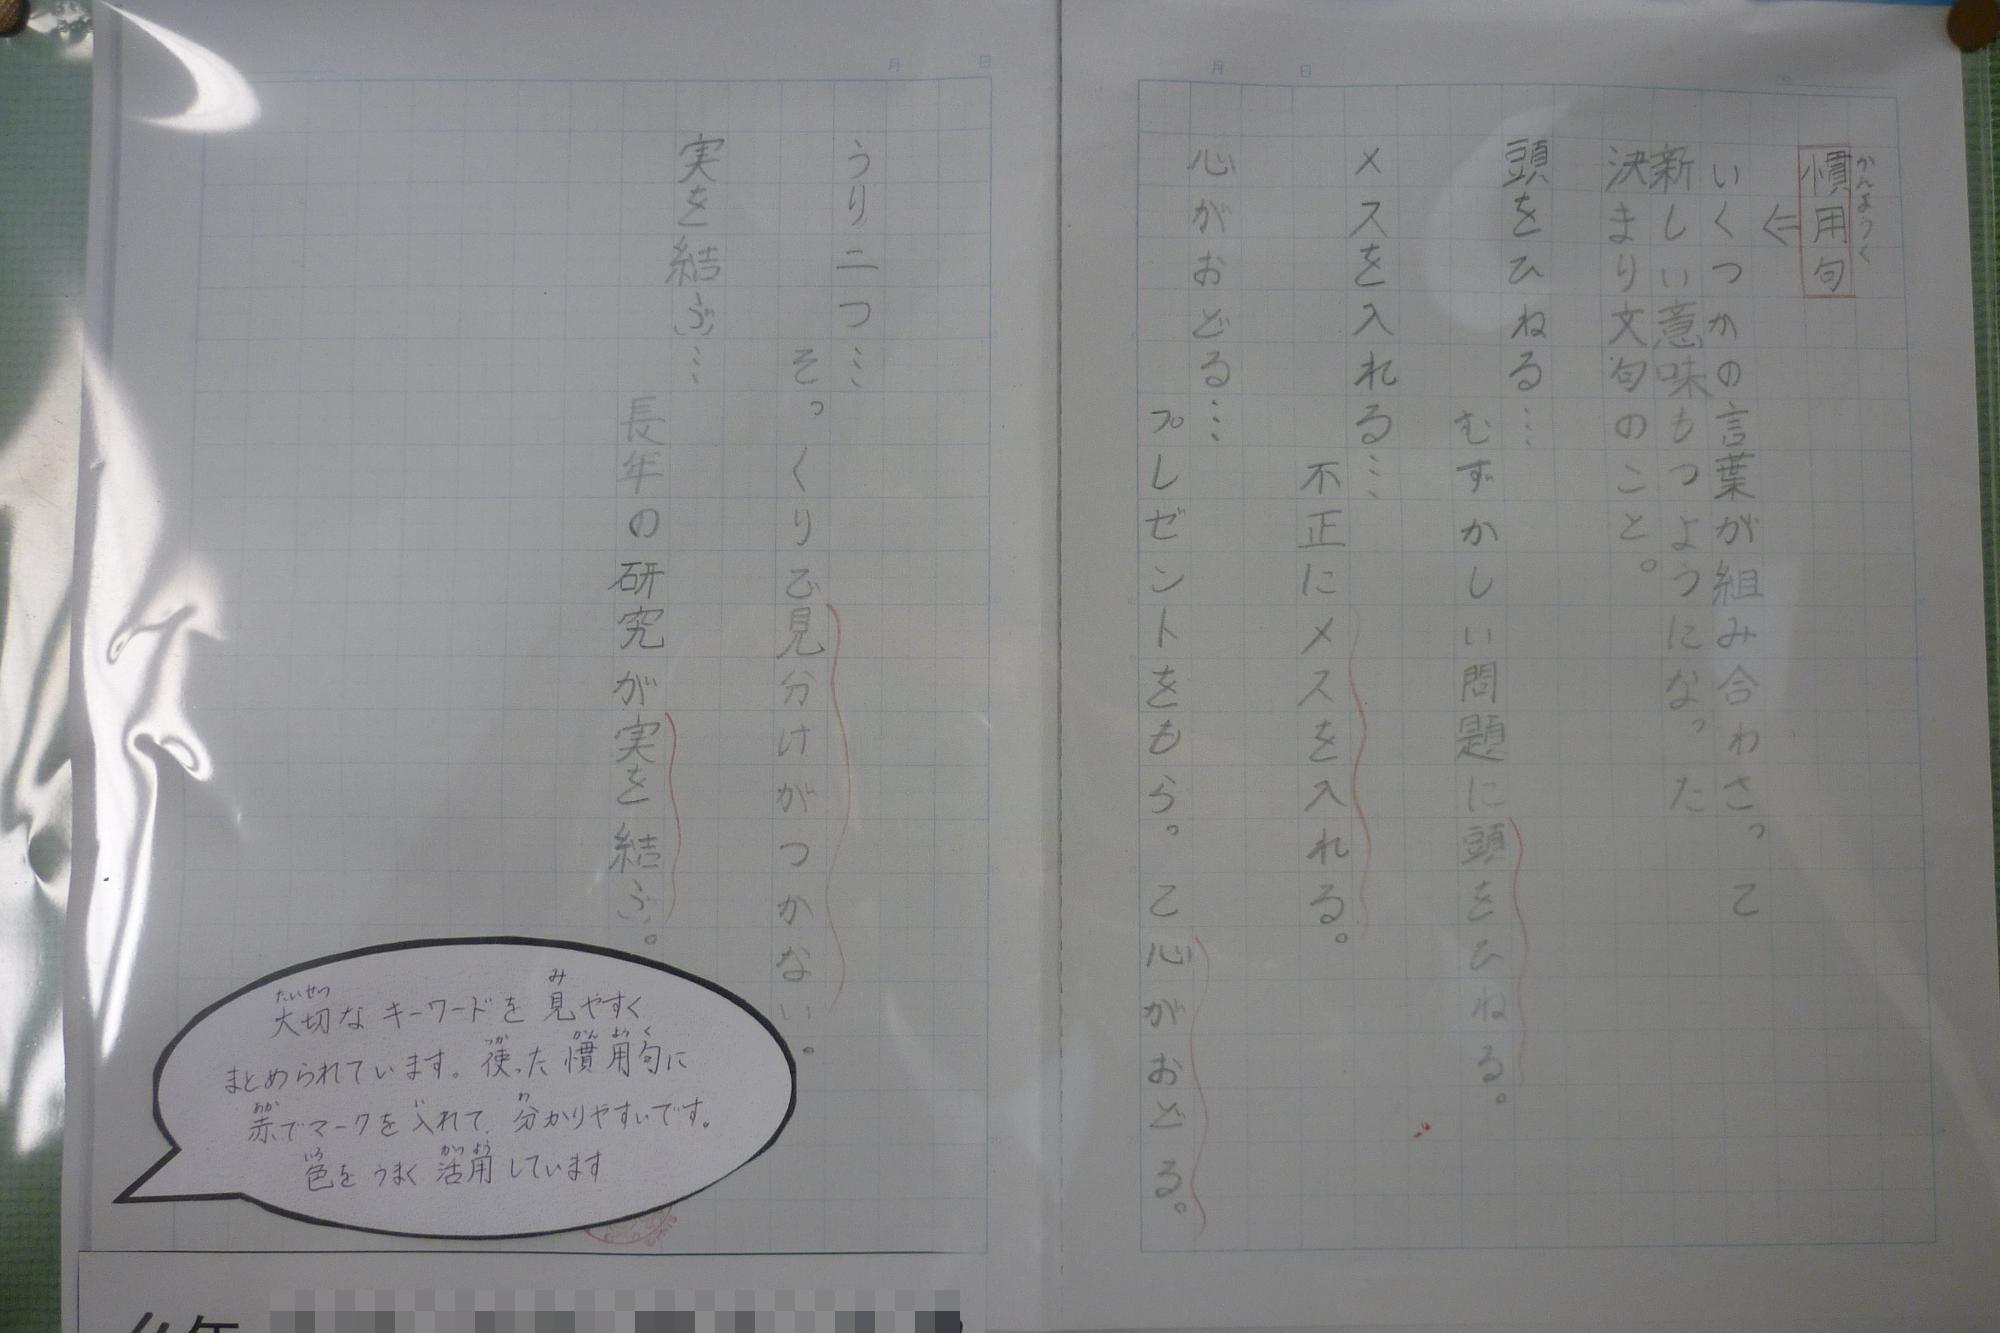 慣用句
かんようく
⇐
いくつかの言葉が組み合わさって
新しい意味もつようになった
決まり文句のこと。
頭をひねる…
むずかしい問題に頭をひねる。
メスを入れる…
不正にメスを入れる。
心がおどる…
プレゼントをもらって心がおどる。
うり二つ…
そっくりで見分けがつかない。
実を結ぶ…
長年の研究が実を結ぶ。
月 日
月 日
たいせつ み
大切なキーワードを見やすく
つか かん よう く
まとめられています。使った慣用句に
あか い わ
赤でマークを入れて、分かりやすいです。
いろ かつ よう
色をうまく活用しています